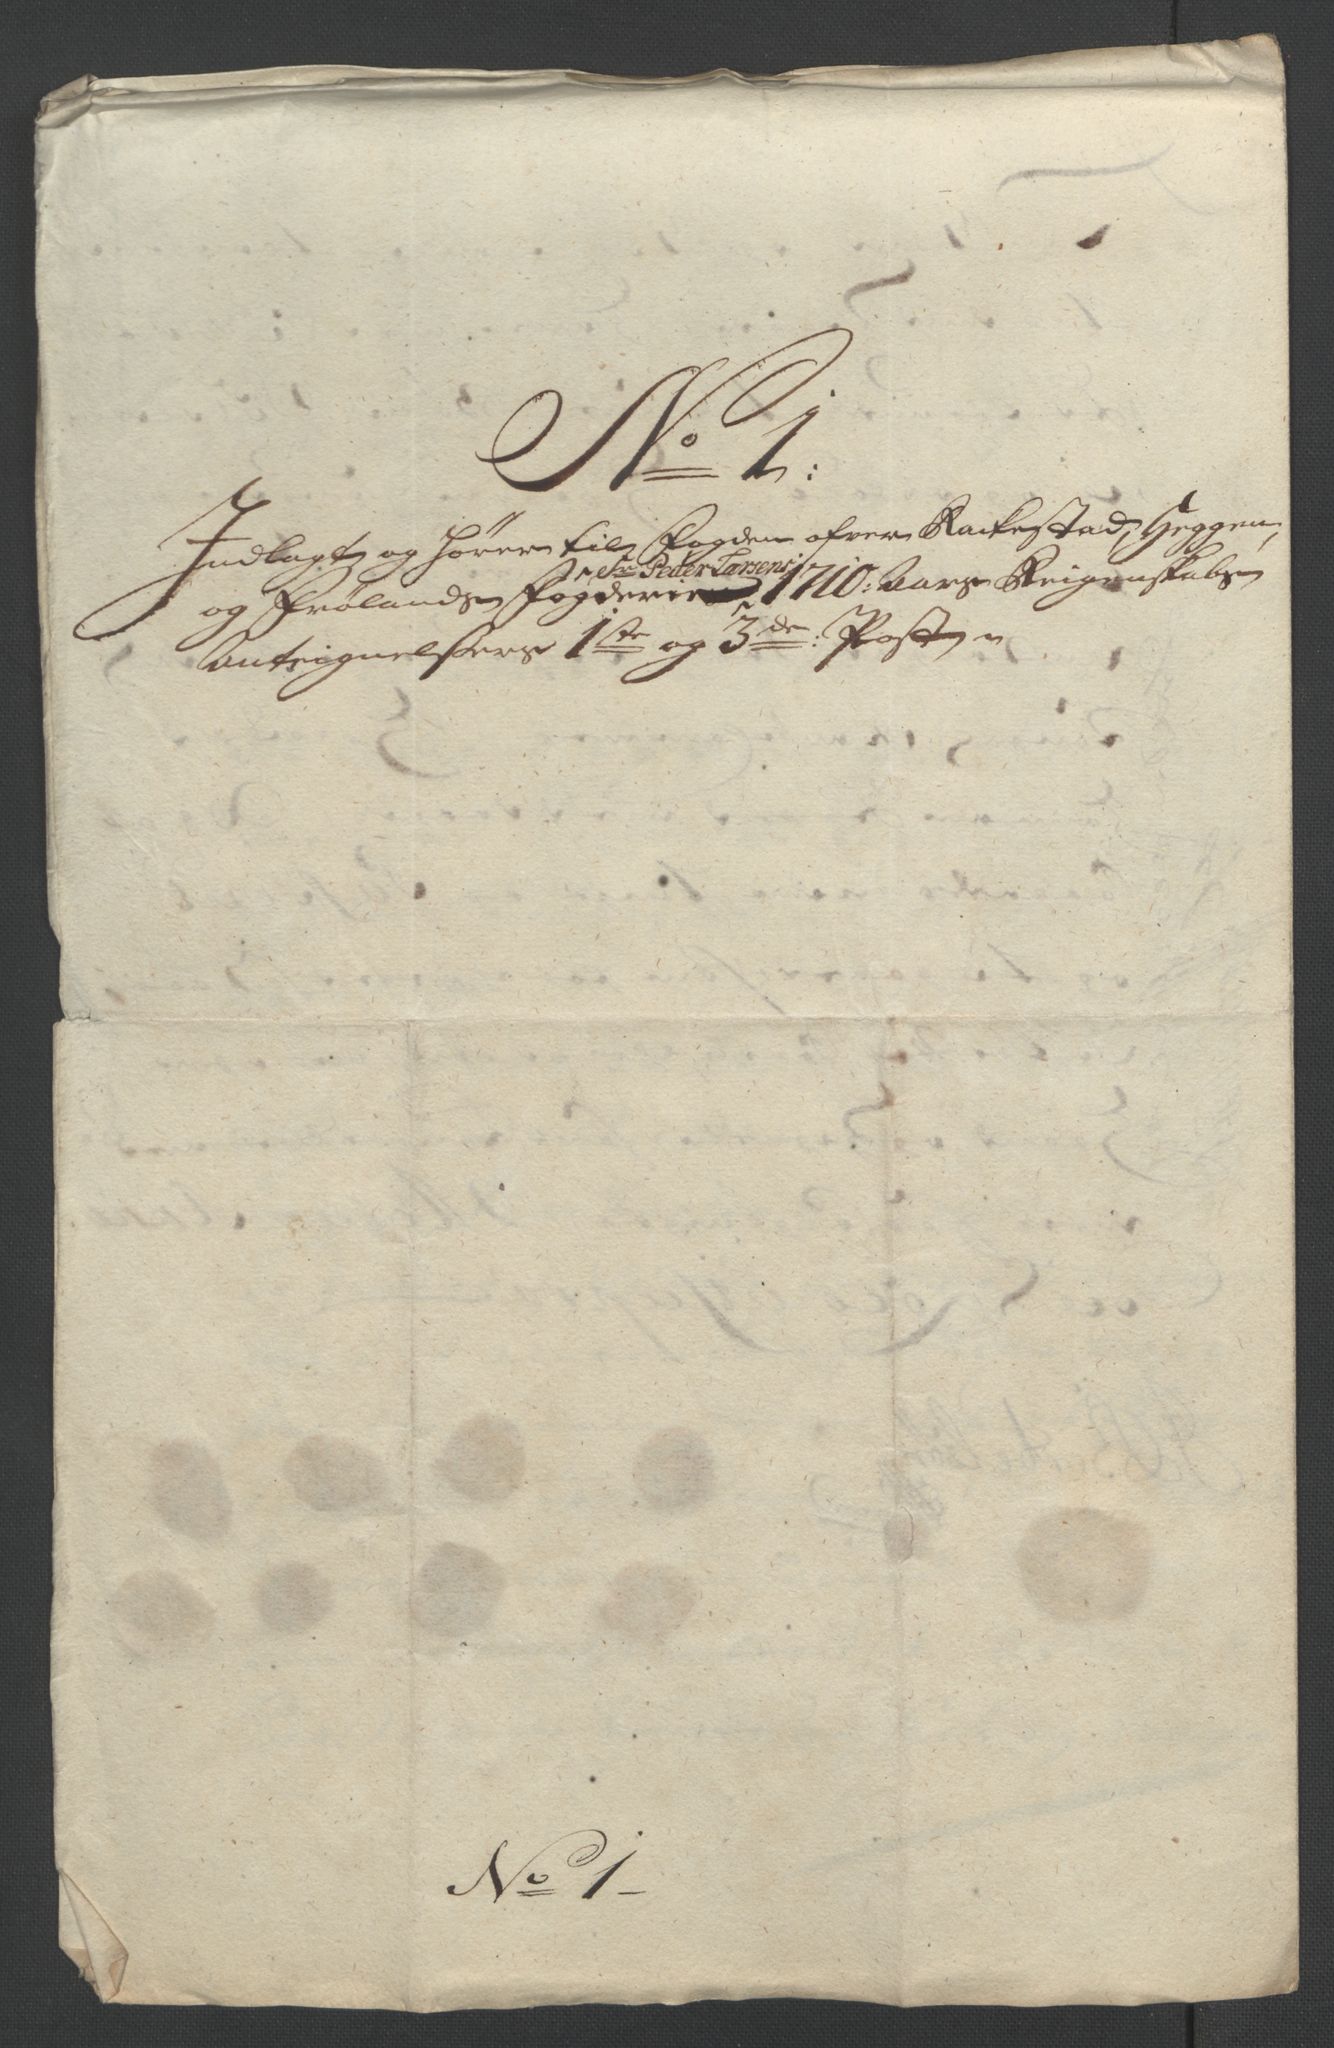 No 1:
Indlagt og hører til Fogden ofver Rackestad, Heggen,
Sr Peder Larsens
og Frølands Fogderie 1710: Aars Reigenskabs
Anteignelsers 1ste og 3de: Post
No 1